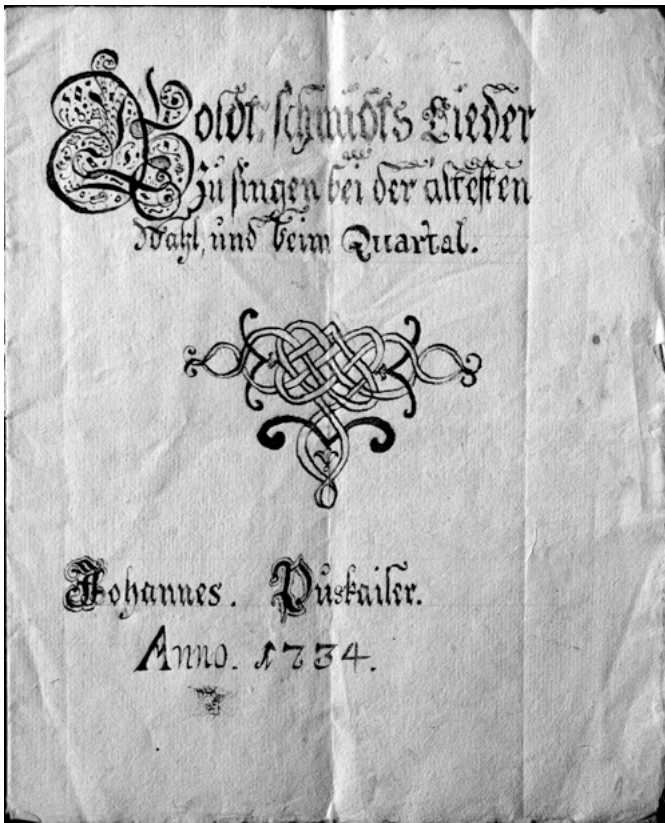 Goldt, schmidts Lieder
Zu singen bei der ältesten
Wahl, und beim Quartal.
Johannes. Puskailer.
Anno. 1734.